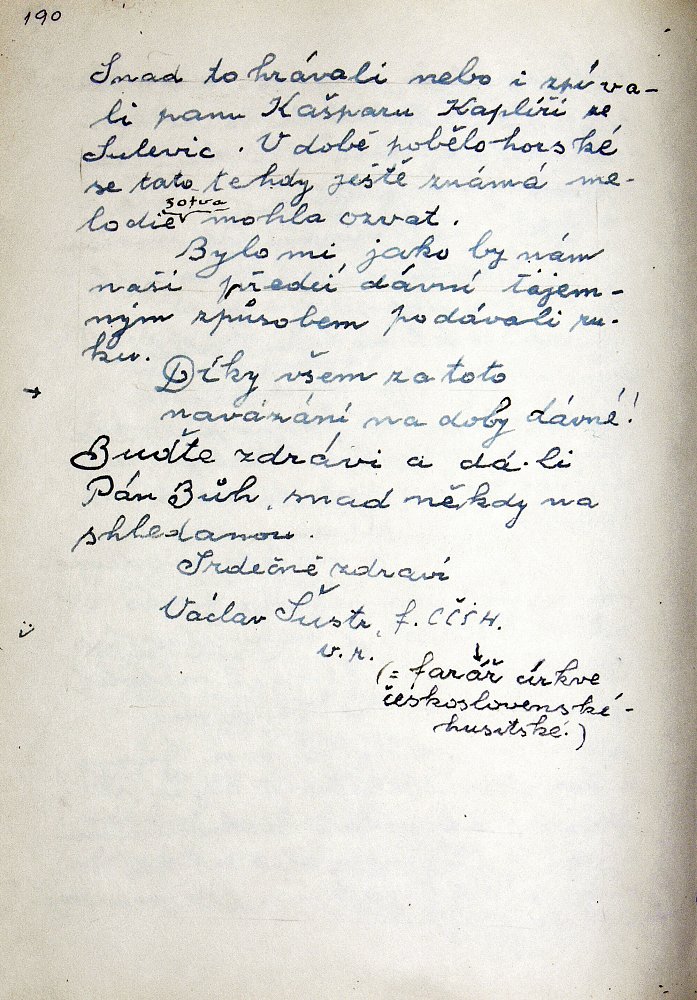 190
Snad to hrávali nebo i zpíva-
li panu Kašparu Kaplíři ze
Sulevic. V době pobělohorské
se tato tehdy ještě známá me-
zotva
lodie mohla ozvat.
Bylo mi, jako by nám
naši předci dávní tajem-
ným způsobem podávali ru-
ku.
Díky všem za toto
navázání na doby dávné!
Buďte zdrávi a dá-li
Pán Bůh, snad někdy na
shledanou.
Srdečně zdraví
Václav Šustr, f. CČSH.
v. r.
(= farář církve
československé-
husitské.)